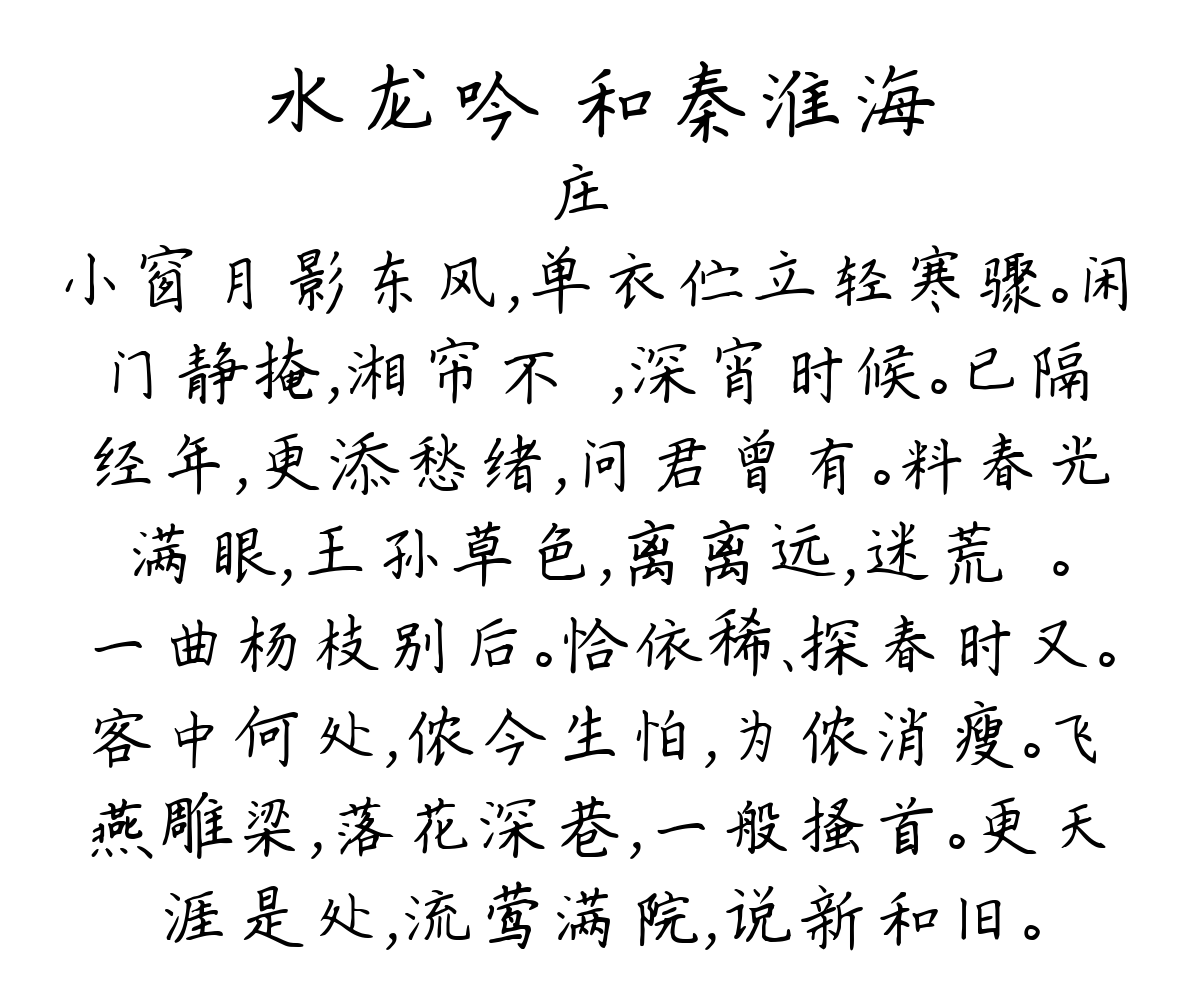 水龙吟 和秦淮海
庄
小窗月影东风,单衣伫立轻寒骤。闲
门静掩,湘帘不 ,深宵时候。已隔
经年,更添愁绪,问君曾有。料春光
满眼,王孙草色,离离远,迷荒 。
一曲杨枝别后。恰依稀、探春时又。
客中何处,侬今生怕,为侬消瘦。飞
燕雕梁,落花深巷,一般搔首。更天
涯是处,流莺满院,说新和旧。